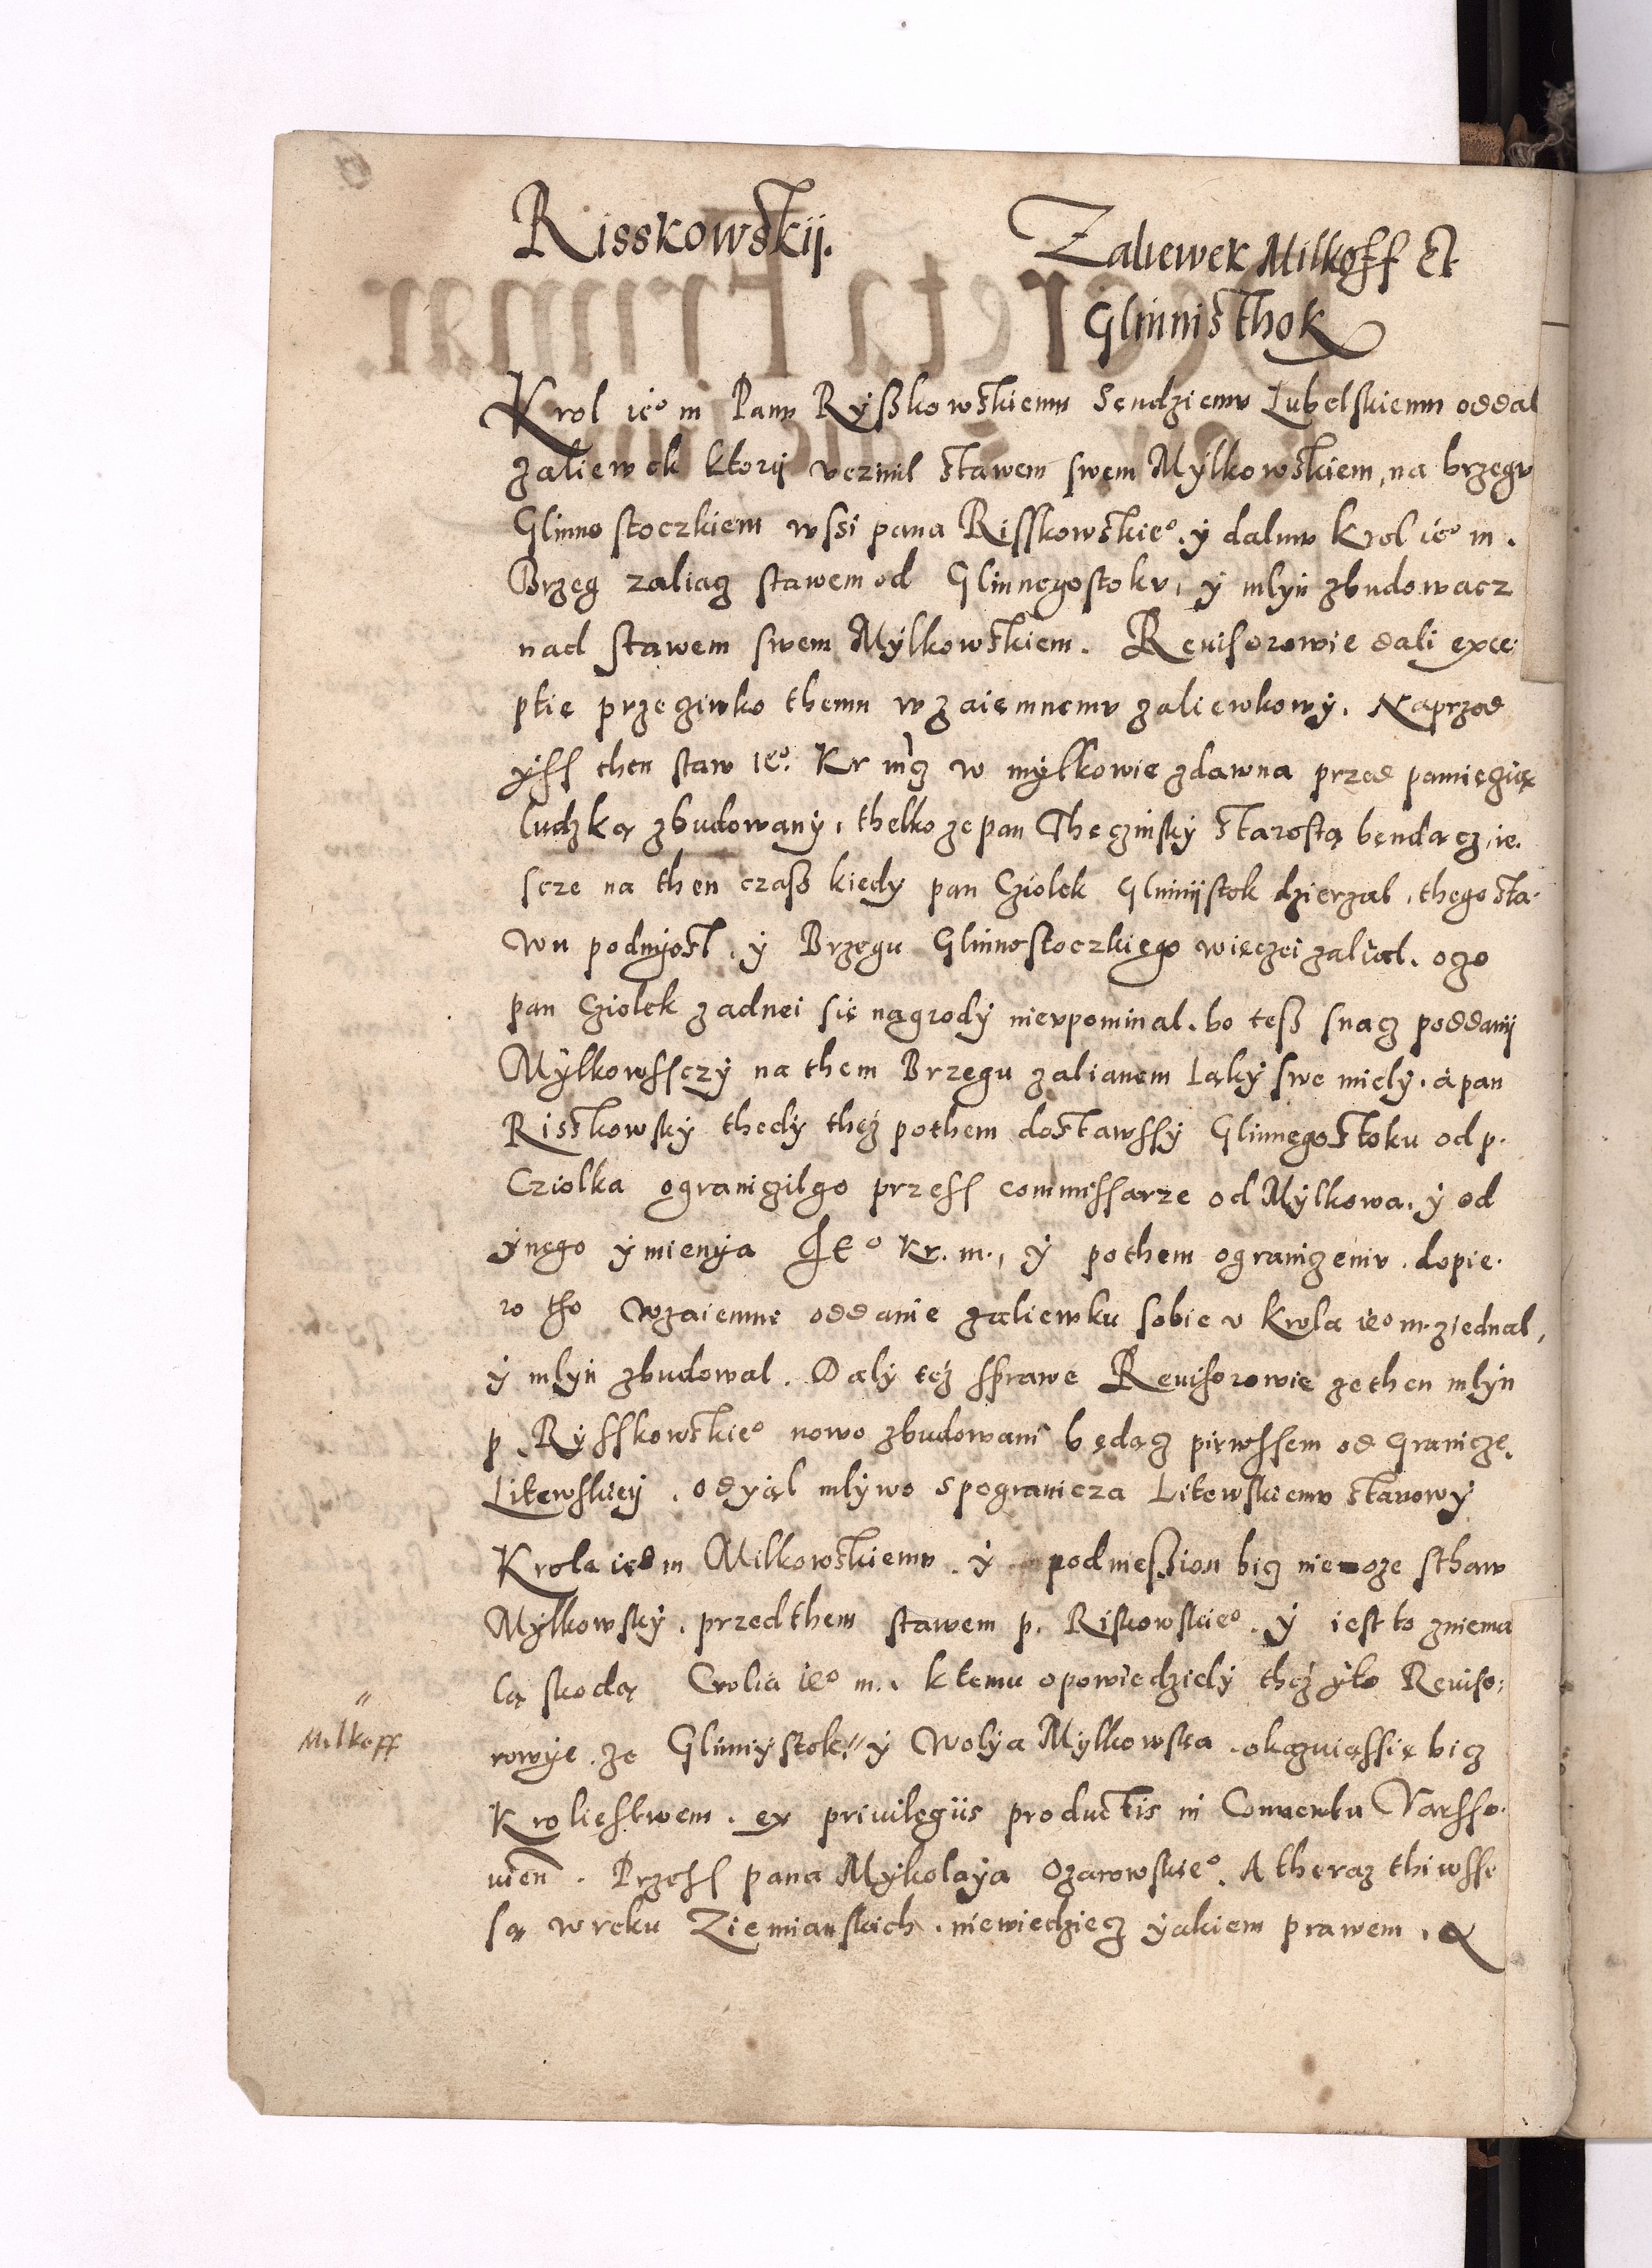 Risskowskij.
Zaliewek Milkoff Et
Glinnisthok
Krol ieº m Panu Ryßkowskiemu Sendziemu Lubelskiemu oddal
zaliewek ktorij vczinil stawem swem Mÿlkowskiem, na brzegu
Glinno stoczkiem wssi pana Risskowskieº. ÿ dalmu krol ieº m.
Brzeg zaliacz stawem od Glinnegostoku, ÿ mlÿn zbudowacz
nad stawem swem Mÿlkowskiem. Reuisorowie dali exce:
ptie przeciwko themu wzaiemnemu zaliewkowÿ. Naprzod
ÿss then staw ieº. Kr mcz w mÿlkowie zdawna przed pamięcią
ludzką zbudowanÿ, thelko ze pan Thęczinskÿ starostą bendącz, ie.
scze na then czaß kiedy pan Cziolek Glinnijstok dzierzal, thego sta-
wu podnyosl, ÿ Brzegu Glinnostoczkiego więczei zalial. ogo
pan Cziolek zadnei się nagrodÿ nievpominal. bo teß snacz poddanij
Mÿlkowssczÿ na them Brzegu zalianem Ląkÿ swe mielÿ. a pan
Risskowskÿ thedÿ theż pothem dostawssÿ Glinnegostoku od p.
Cziolka ograniczilgo przess commissarze od Mÿlkowa. ÿ od
ÿnego ÿmienÿa Jeº Kr. m., ÿ pothem ograniczeniu. dopie.
ro tho wzaiemne oddanie zaliewku sobie v krola ieº m. ziednal,
ÿ mlÿn zbudowal. Dalÿ też sprawę Reuisorowie ze then mlÿn
p. Rysskowskieº nowo zbudowani będącz pirwssem od Granicze
Litewskieÿ. odÿąl mlÿwo spogranicza Litewskiemu stawowÿ
Krola ieº m Milkowskiemu. ÿ podnießion bicz niemoze sthaw
Mÿlkowskÿ. przedthem stawem p. Riskowskieº. ÿ iest to zniema
lą skodą Crolia ieº m. k temu opowiedzielÿ theż ÿto Reuiso:
rowÿe. ze Glinnÿstok," ÿ Wolÿa Mÿlkowska. okazuiąssię bicz
Kroliestwem. ex priuilegiis productis in Conuentu Varsso.
uien. Przess pana Mÿkolaÿa Ozarowskieº. A theraz thi wsse
są w reku Ziemianskich. niewiedziecz ÿakiem prawem, &
"
Milkoff